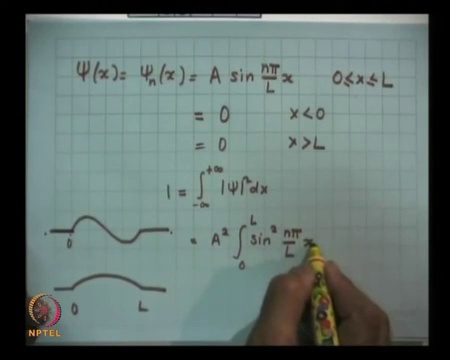 Ψ(x) = Ψn(x) = A sin nπ/L x    0≤x≤L
= 0    x<0
= 0    x>L
1 = ∫_{-∞}^{+∞} |Ψ|² dx
= A² ∫_0^L sin² nπ/L x
0
0 L
NPTEL